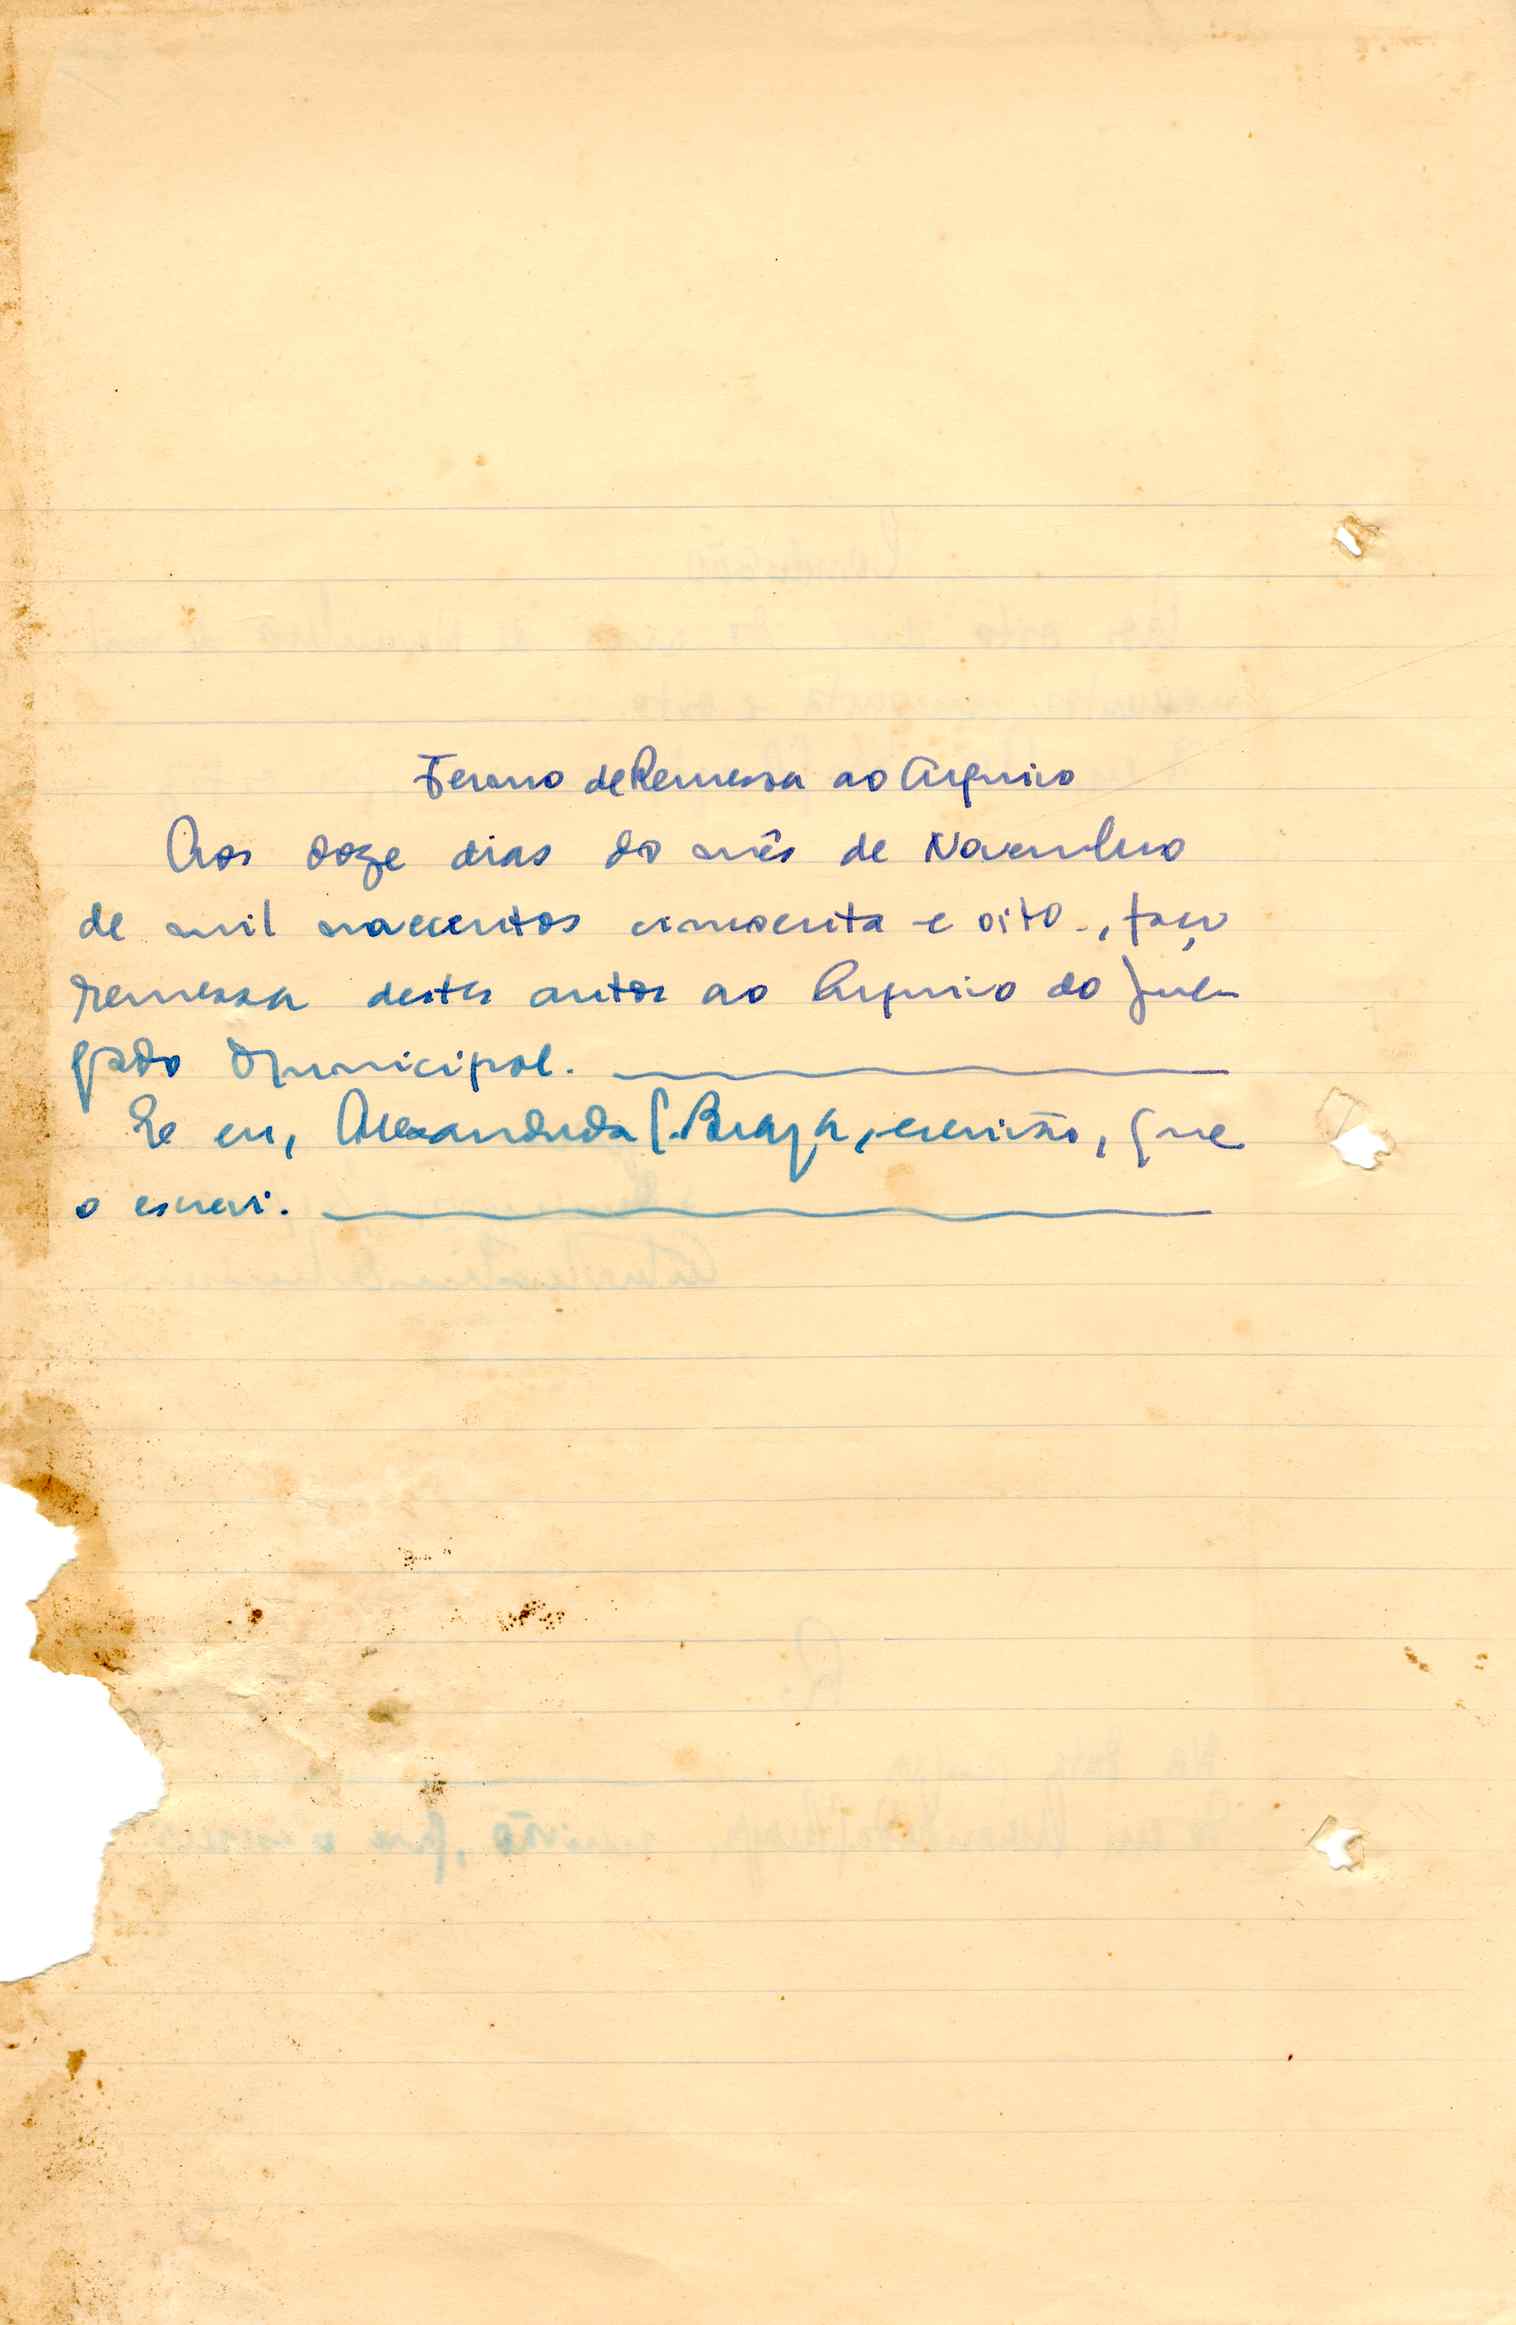 Termo de Remessa ao Arquivo
Aos doze dias do mês de Novembro
de mil novecentos cincoenta e oito, faço
remessa destes autos ao Arquivo do Jul-
gado Municipal.
E eu, Braga, escrivão, que
o escrevi.